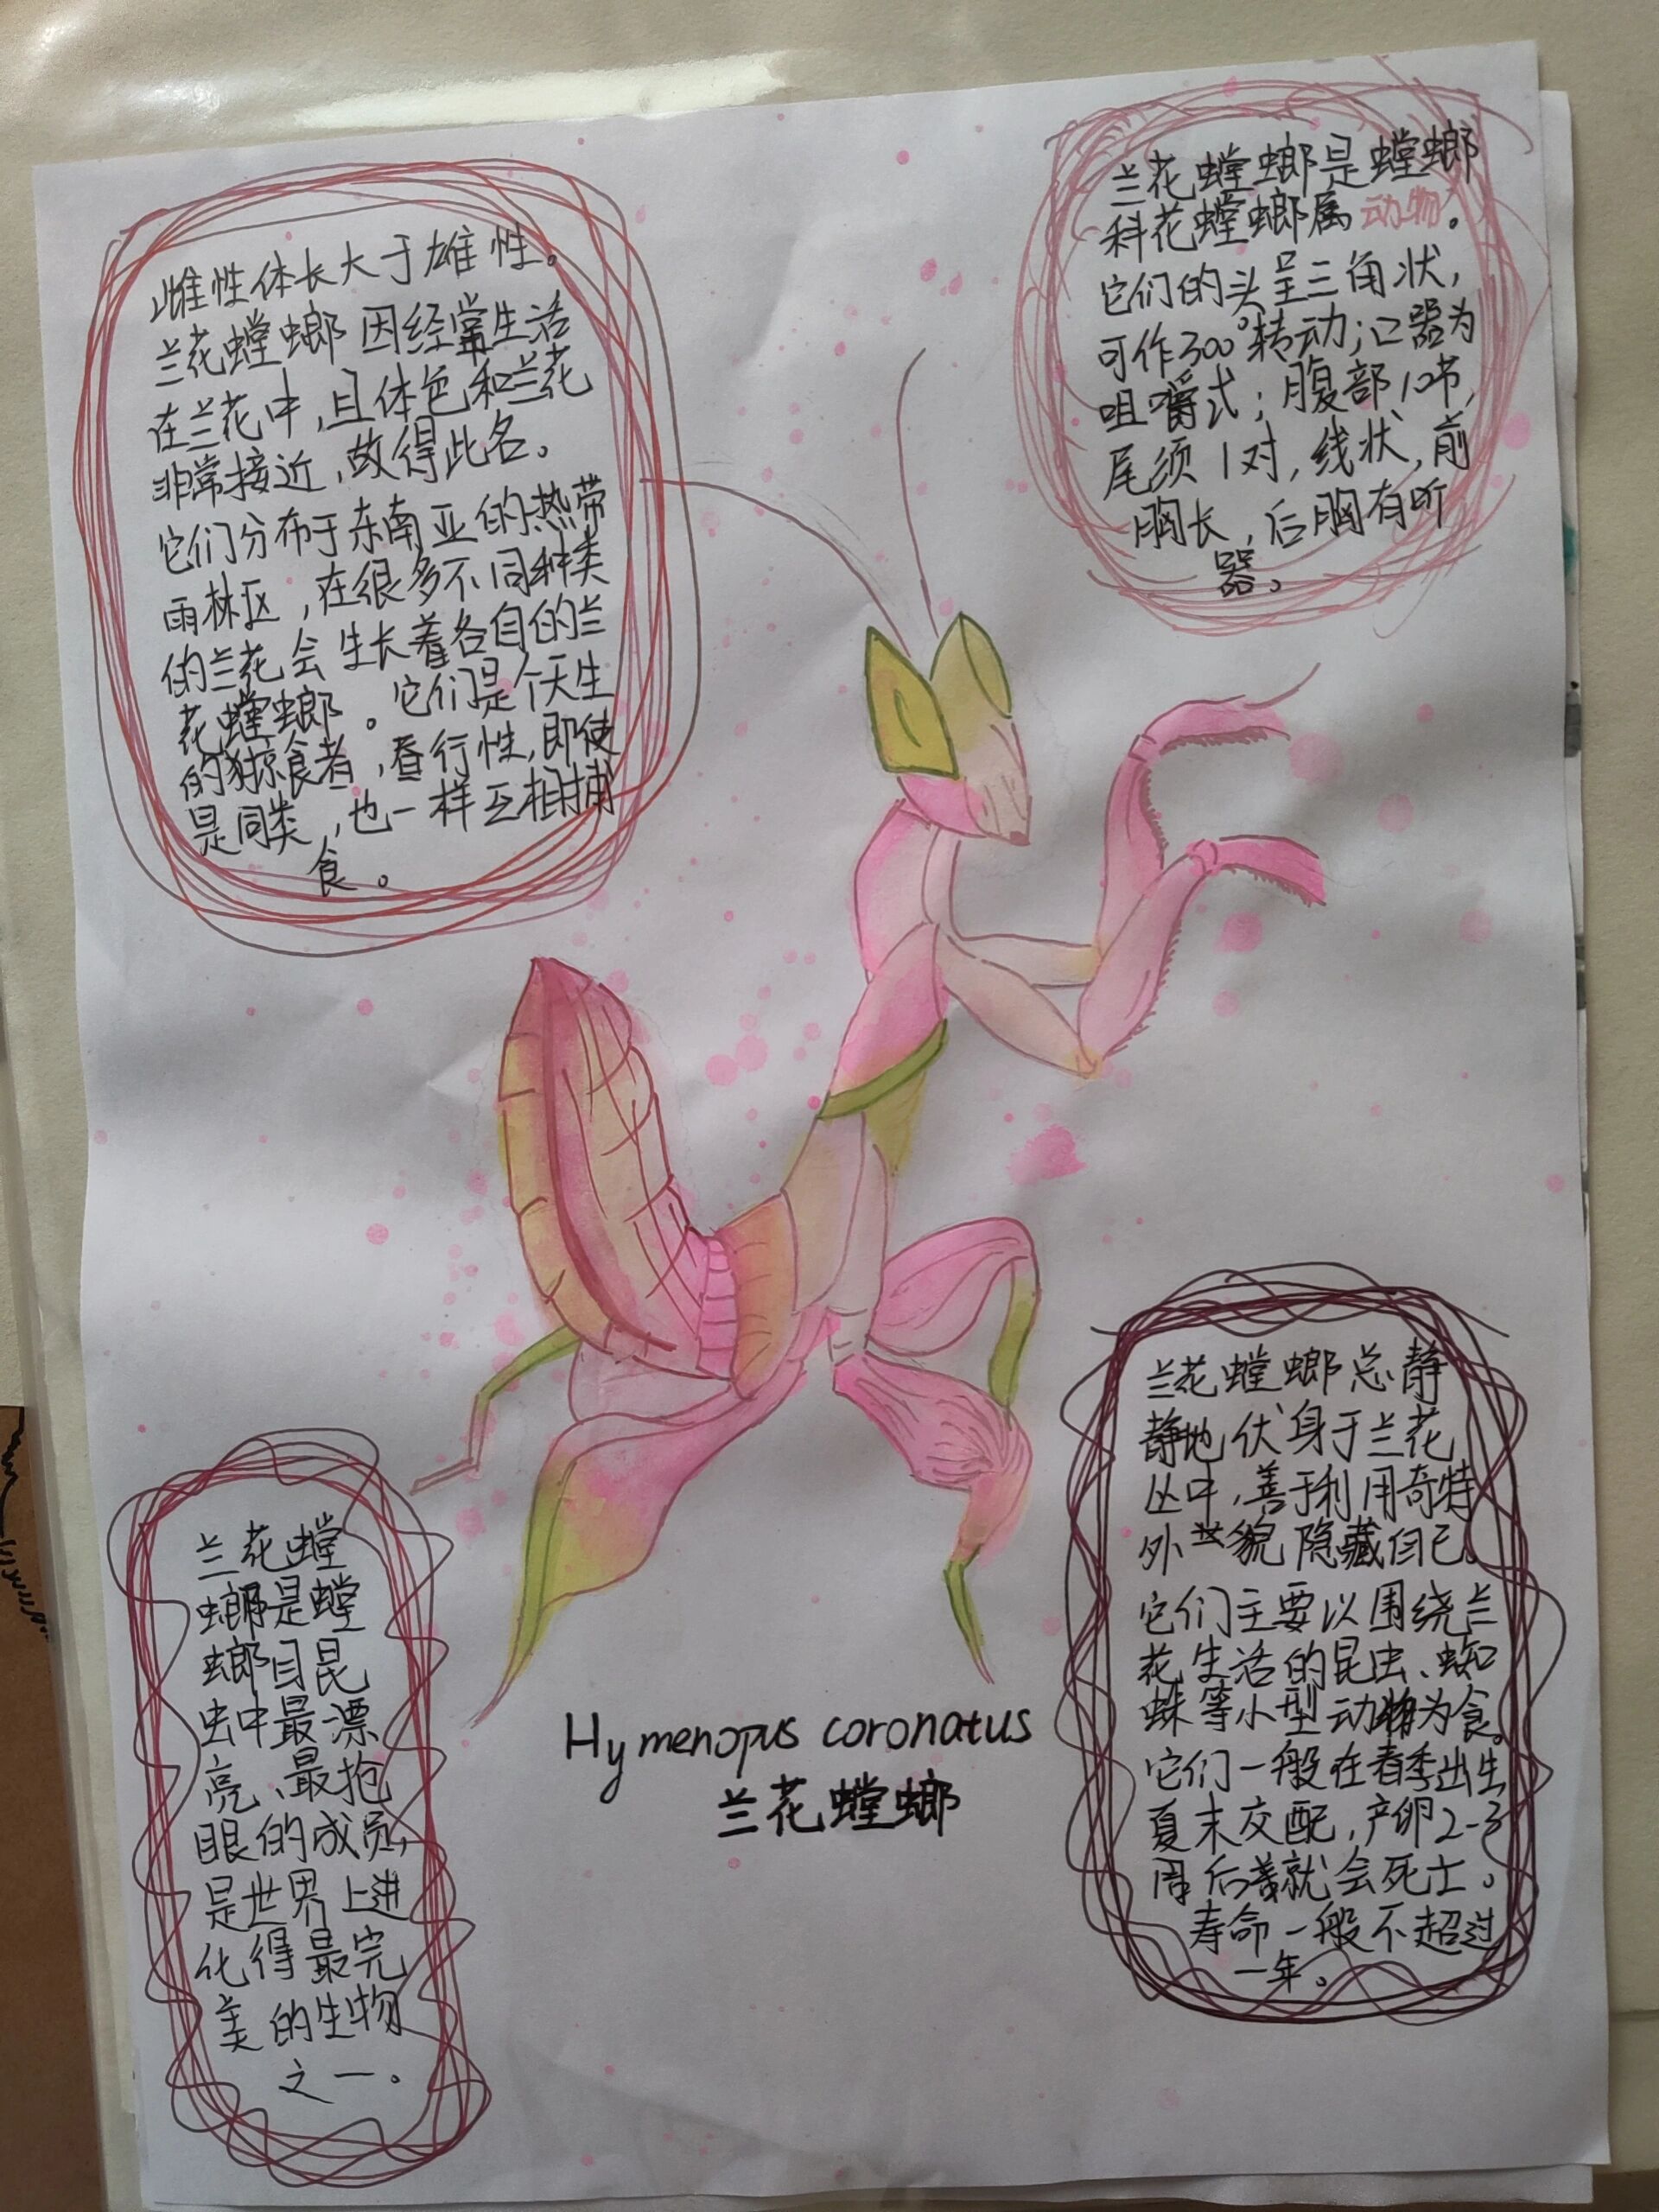 雌性体长大于雄性。
兰花螳螂因经常生活
在兰花中,且体色和兰花
非常接近,故得此名。
它们分布于东南亚的热带
雨林区,在很多不同种类
的兰花会生长着各自的兰
花螳螂。它们是个天生
的掠食者,昼行性,即使
是同类,也一样互相捕
食。
兰花螳螂是螳螂
科花螳螂属动物。
它们的头呈三角状,
可作300°转动;口器为
咀嚼式;腹部10节,
尾须1对,线状,前
胸长,后胸有听
器。
兰花螳
螂是螳
螂目昆
虫中最漂
亮、最抢
眼的成员,
是世界上进
化得最完
美的生物
之一。
Hymenopus coronatus
兰花螳螂
兰花螳螂总静
静地伏身于兰花
丛中,善于利用奇特
外貌隐藏自己。
它们主要以围绕兰
花生活的昆虫、蜘
蛛等小型动物为食。
它们一般在春季出生
夏末交配,产卵2-3
周后就会死亡。
寿命一般不超过
一年。